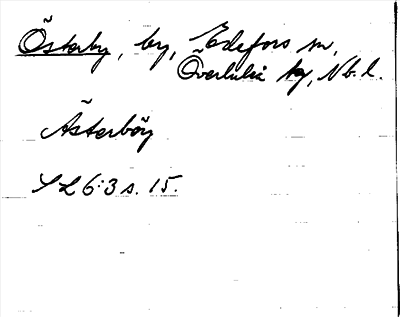 Österby, by, Edefors sn,
Överluleå tg, Nb. l.
Ästerböy
SL 6:3 s. 15.